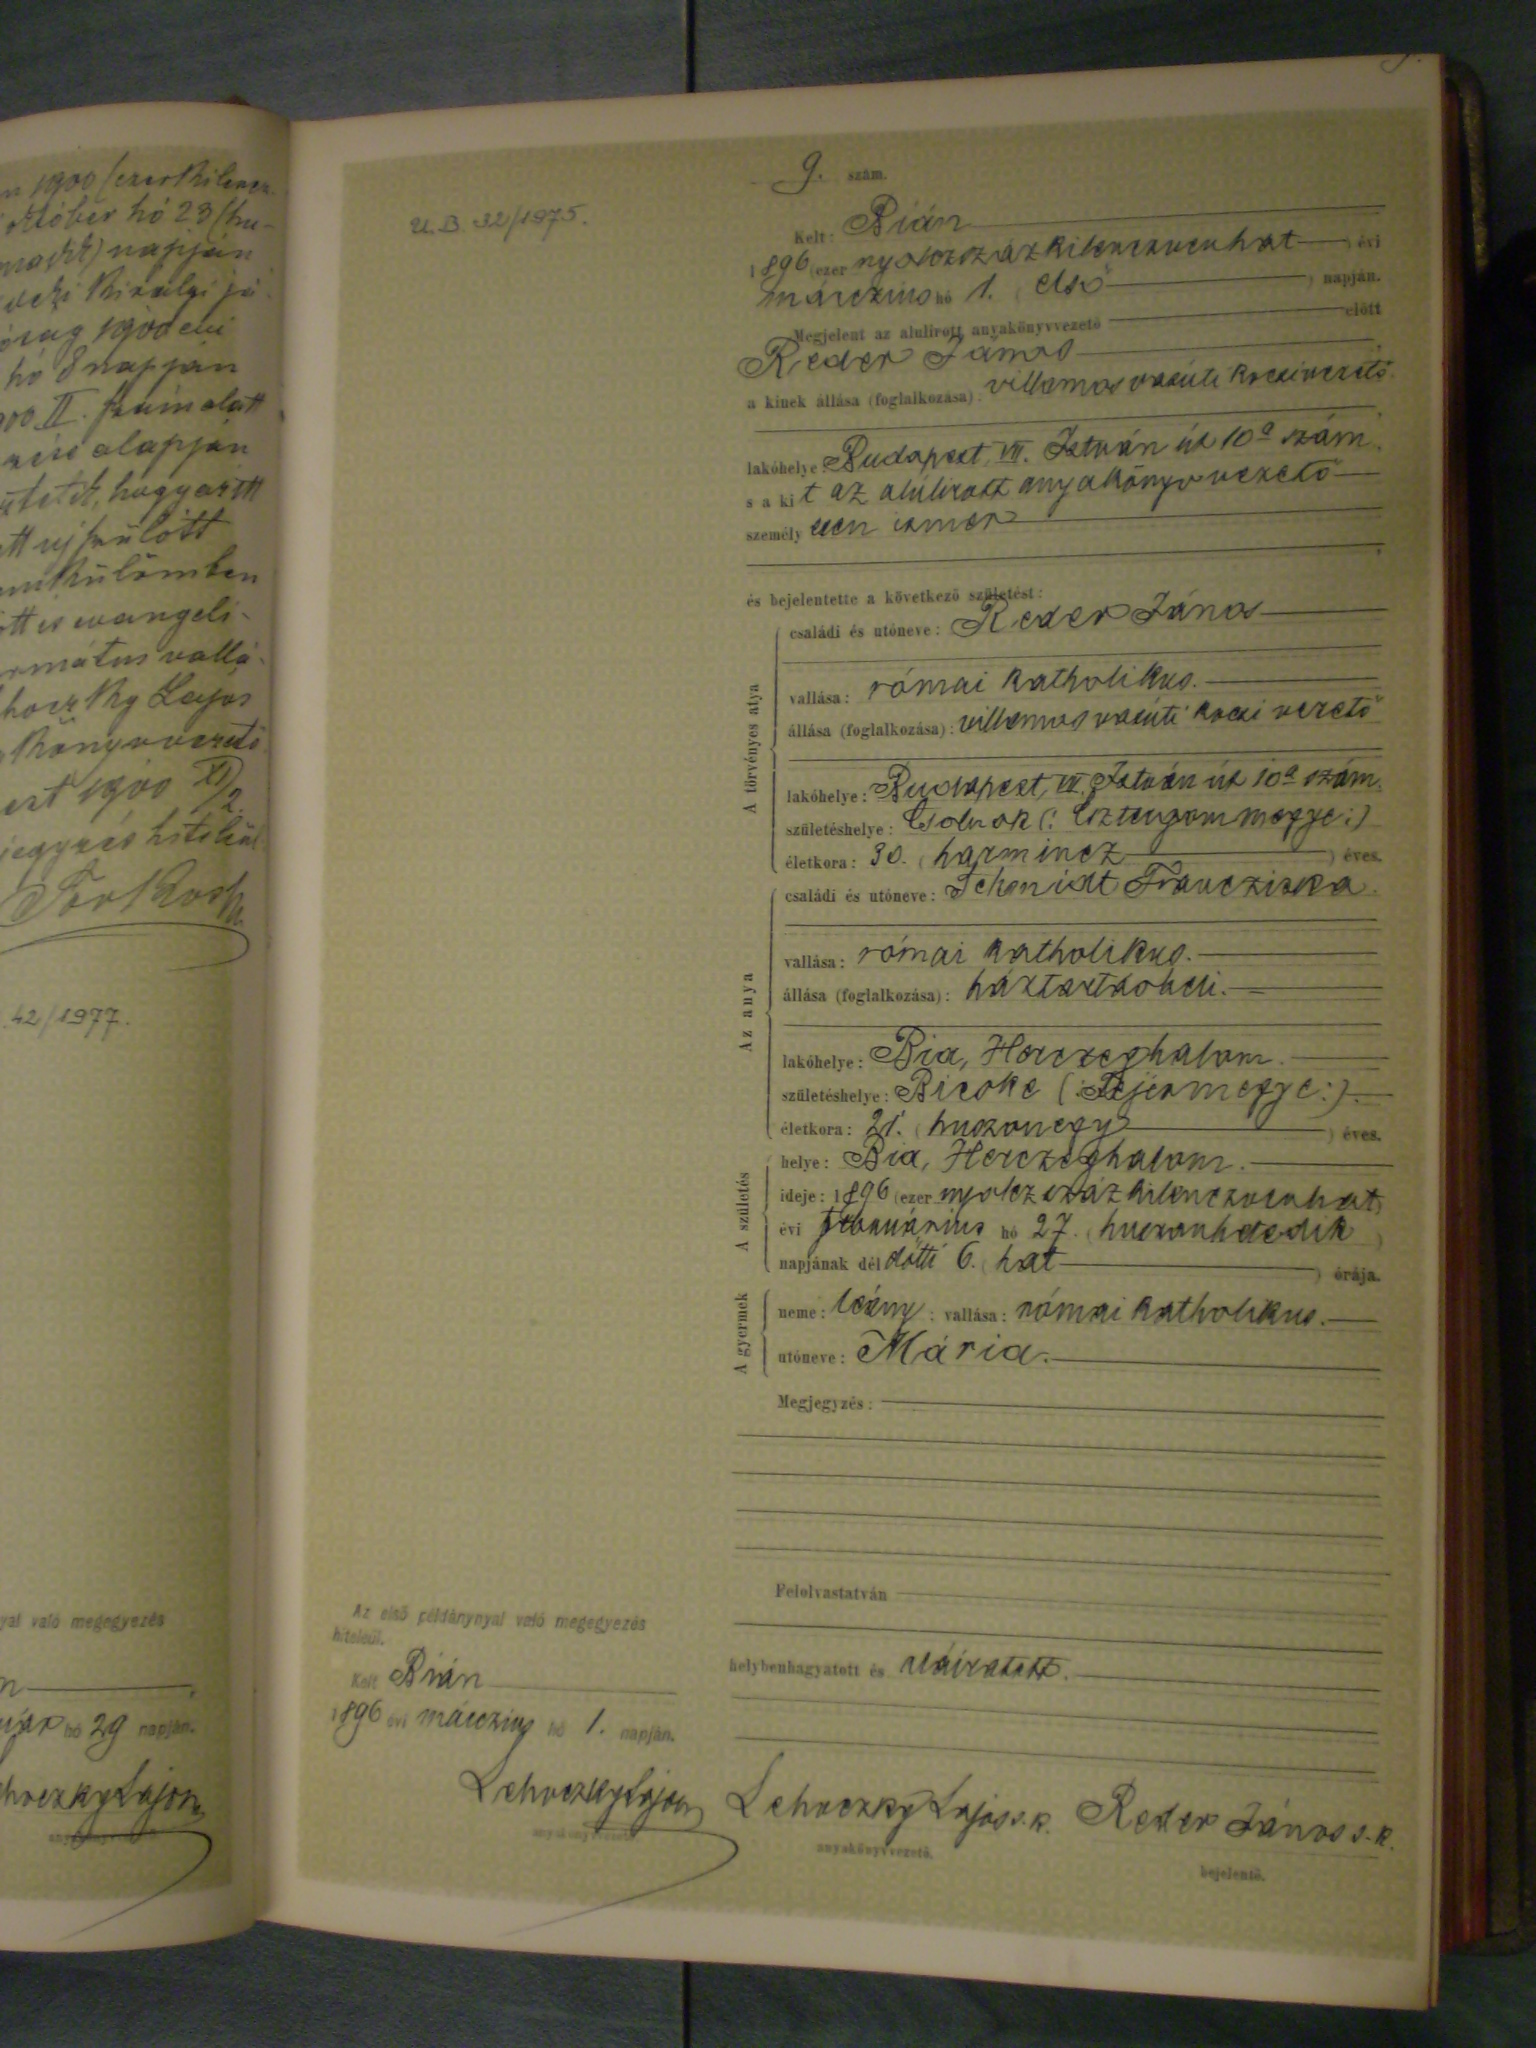 n 1900 (ezerkilencz-
október hó 23 (hu-
napján
királyi já-
1900 evi
hó 8 napján
900 II. szám alatt
alapján
hogy az itt
ujszülött
evangeli-
vallá-
Lajos
könyvvezető
1900 XI/2.
hiteléül
42/1977.
yal való megegyezés
hó 29 napján.
hoczky Lajos
9. szám.
U. B. 32/1975.
Kelt: Bián
1896 (ezer nyolczszázkilenczvenhat) évi
márczius hó 1. (első) napján.
Megjelent az alulirott anyakönyvvezető előtt
Reder János
a kinek állása (foglalkozása): villamosvasúti kocsivezető
lakóhelye Budapest, VII. István út 10a szám,
s a ki t az alulirott anyakönyvvezető
személy esen ismer
és bejelentette a következő születést:
A törvényes atya
családi és utóneve: Reder János
vallása: római katholikus.
állása (foglalkozása): villamosvasúti kocsi vezető
lakóhelye: Budapest, VII. István út 10a szám.
születéshelye: Csolnok (: Esztergommegye :)
életkora: 30. (harmincz) éves.
Az anya
családi és utóneve: Schmidt Francziska.
vallása: római katholikus.
állása (foglalkozása): háztartásbeli.
lakóhelye: Bia, Herczeghalom.
születéshelye: Bicske (: Fejérmegye :).
életkora: 21. (huszonegy) éves.
A születés
helye: Bia, Herczeghalom.
ideje: 1896 (ezer nyolczszázkilenczvenhat)
évi február­ius hó 27. (huszonhetedik)
napjának dél előtti 6. (hat) órája.
A gyermek
neme: leány; vallása: római katholikus.
utóneve: Mária.
Megjegyzés:
Felolvastatván
helybenhagyatott és aláiratott.
Az első példánynyal való megegyezés
hiteléül.
Kelt Bián
1896 évi márczius hó 1. napján.
Lehoczky Lajos
anyakönyvvezető.
Lehoczky Lajos s. k.
anyakönyvvezető.
Reder János s. k.
bejelentő.